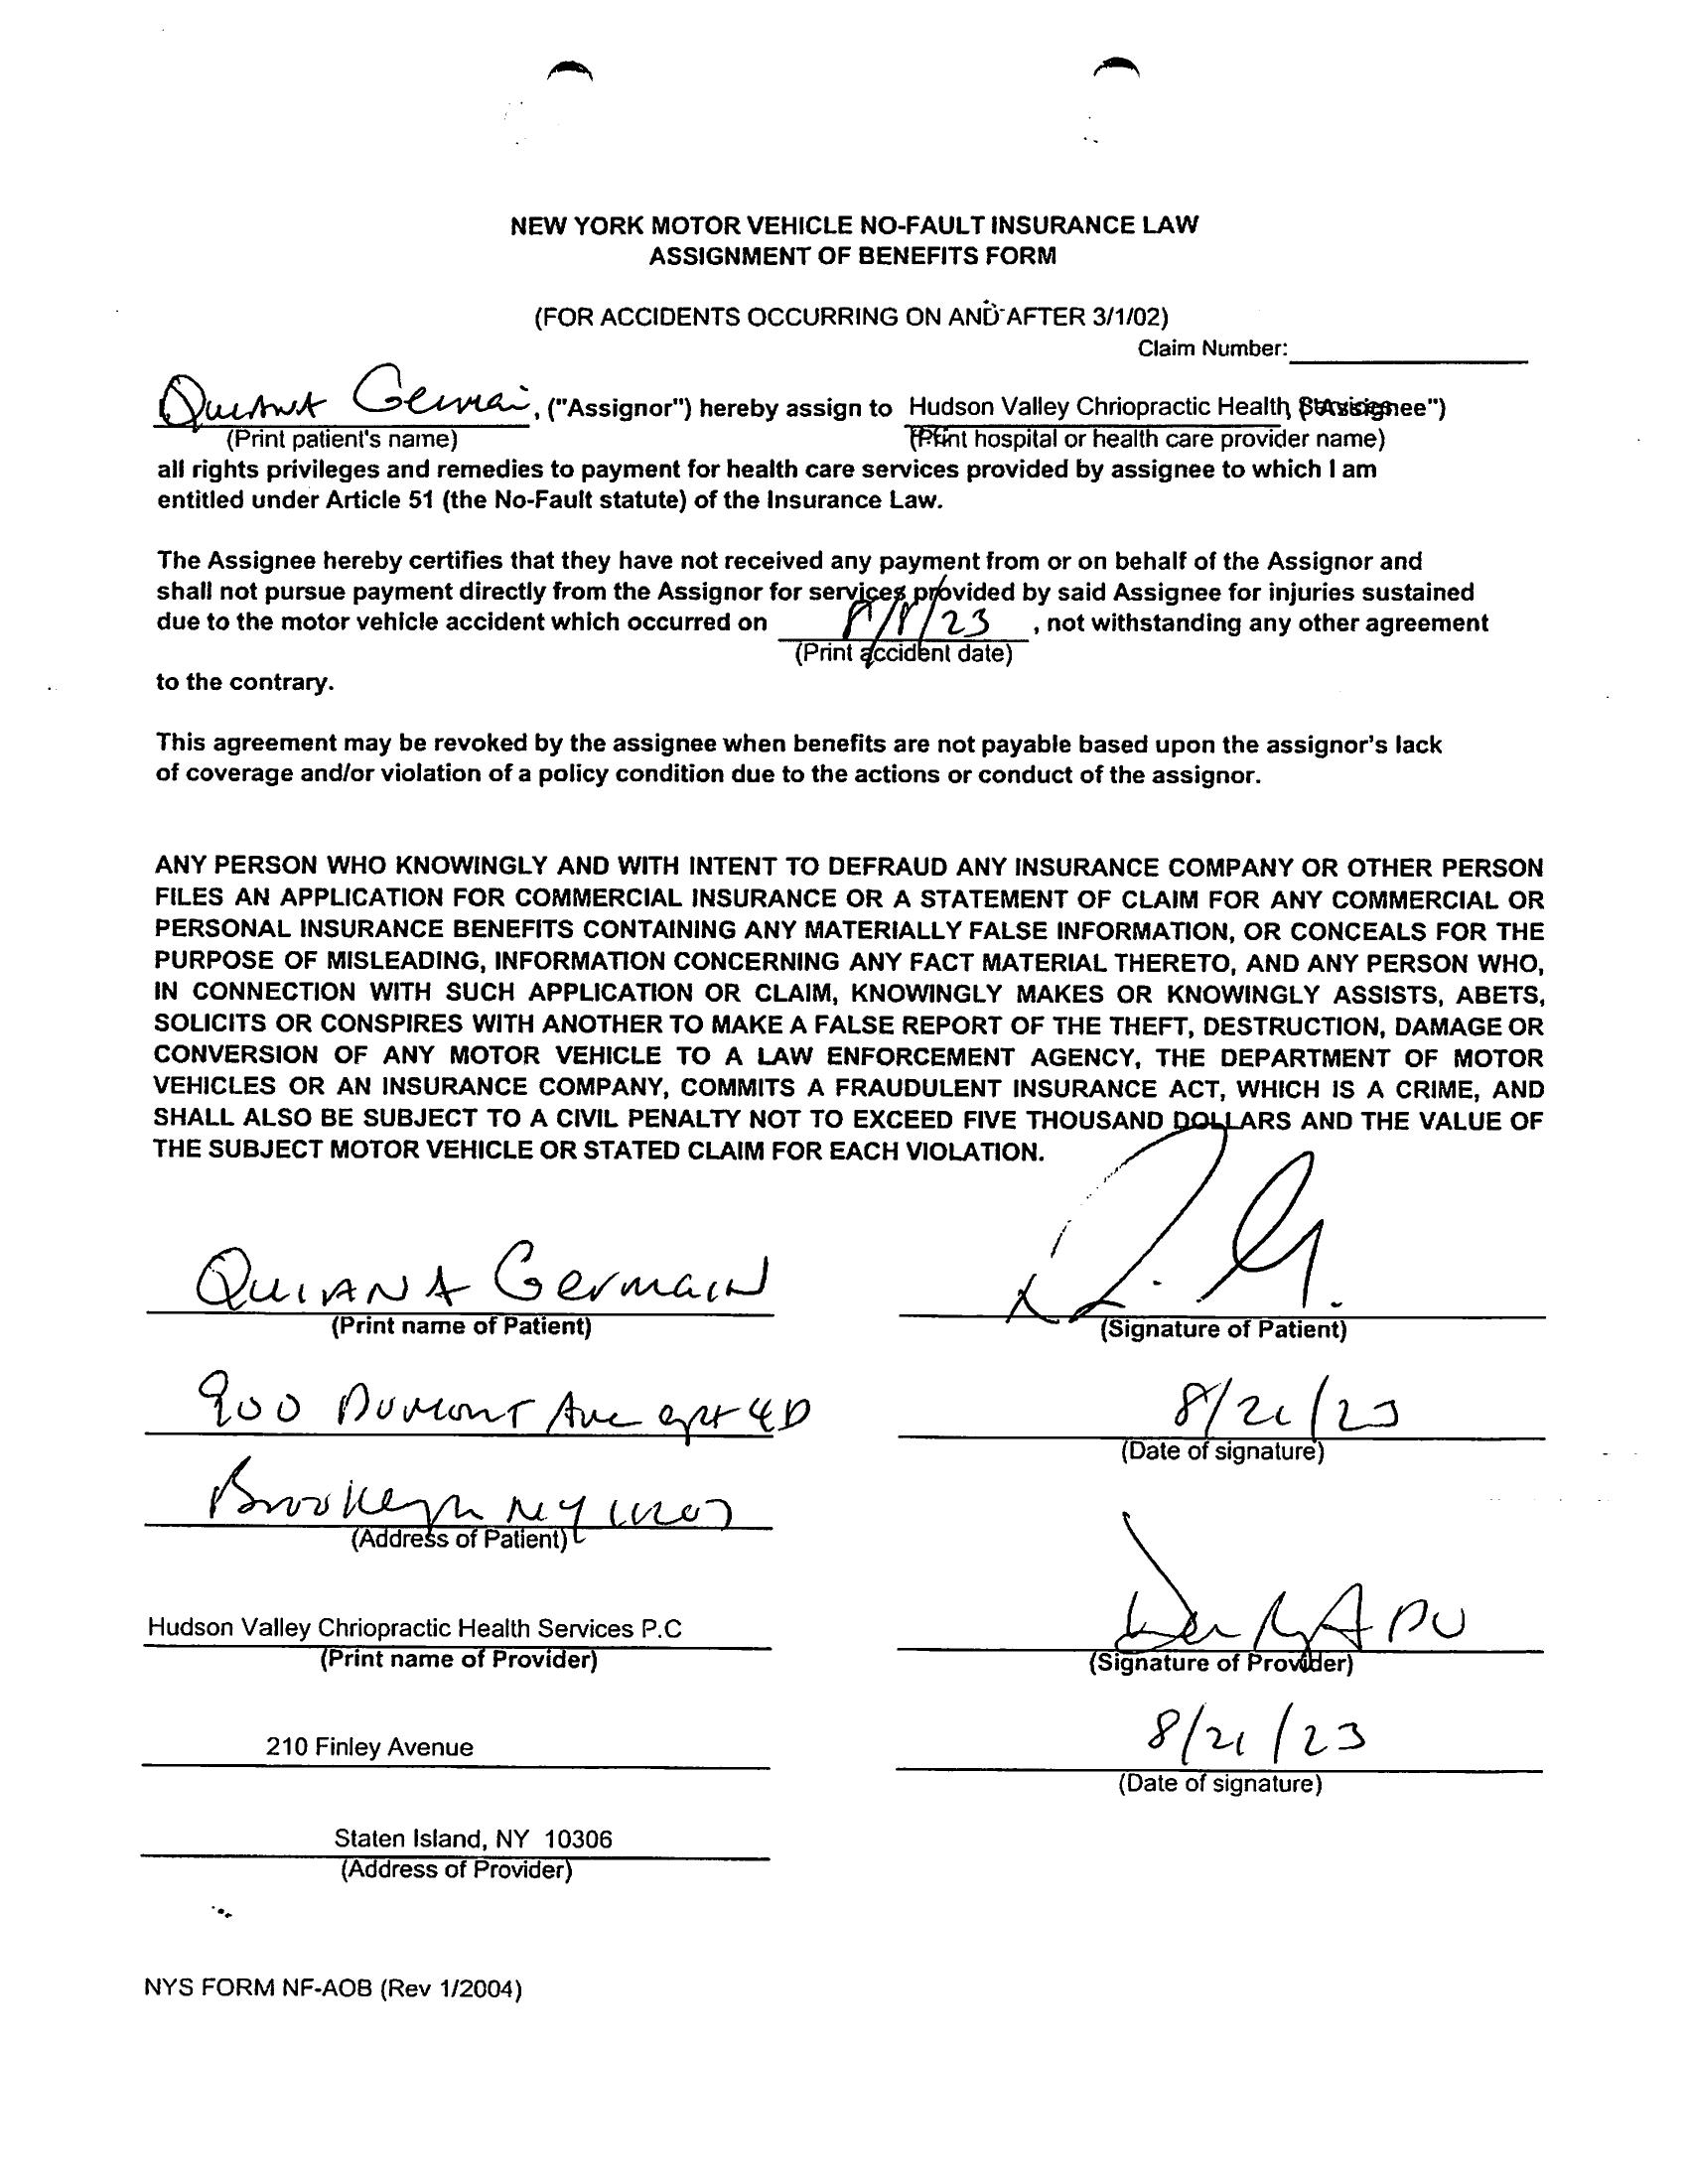 NEW YORK MOTOR VEHICLE NO-FAULT INSURANCE LAW
ASSIGNMENT OF BENEFITS FORM
(FOR ACCIDENTS OCCURRING ON AND AFTER 3/1/02)
Claim Number:
Quiana Germai, ("Assignor") hereby assign to Hudson Valley Chriopractic Health Services ("Assignee")
(Print patient's name) (Print hospital or health care provider name)
all rights privileges and remedies to payment for health care services provided by assignee to which I am
entitled under Article 51 (the No-Fault statute) of the Insurance Law.
The Assignee hereby certifies that they have not received any payment from or on behalf of the Assignor and
shall not pursue payment directly from the Assignor for services provided by said Assignee for injuries sustained
due to the motor vehicle accident which occurred on 8/8/23, not withstanding any other agreement
(Print accident date)
to the contrary.
This agreement may be revoked by the assignee when benefits are not payable based upon the assignor's lack
of coverage and/or violation of a policy condition due to the actions or conduct of the assignor.
ANY PERSON WHO KNOWINGLY AND WITH INTENT TO DEFRAUD ANY INSURANCE COMPANY OR OTHER PERSON
FILES AN APPLICATION FOR COMMERCIAL INSURANCE OR A STATEMENT OF CLAIM FOR ANY COMMERCIAL OR
PERSONAL INSURANCE BENEFITS CONTAINING ANY MATERIALLY FALSE INFORMATION, OR CONCEALS FOR THE
PURPOSE OF MISLEADING, INFORMATION CONCERNING ANY FACT MATERIAL THERETO, AND ANY PERSON WHO,
IN CONNECTION WITH SUCH APPLICATION OR CLAIM, KNOWINGLY MAKES OR KNOWINGLY ASSISTS, ABETS,
SOLICITS OR CONSPIRES WITH ANOTHER TO MAKE A FALSE REPORT OF THE THEFT, DESTRUCTION, DAMAGE OR
CONVERSION OF ANY MOTOR VEHICLE TO A LAW ENFORCEMENT AGENCY, THE DEPARTMENT OF MOTOR
VEHICLES OR AN INSURANCE COMPANY, COMMITS A FRAUDULENT INSURANCE ACT, WHICH IS A CRIME, AND
SHALL ALSO BE SUBJECT TO A CIVIL PENALTY NOT TO EXCEED FIVE THOUSAND DOLLARS AND THE VALUE OF
THE SUBJECT MOTOR VEHICLE OR STATED CLAIM FOR EACH VIOLATION.
QUIANA Germain
(Print name of Patient) (Signature of Patient)
900 DUMONT Ave apt 4D 8/21/23
(Date of signature)
Brooklyn NY 11207
(Address of Patient)
Hudson Valley Chriopractic Health Services P.C
(Print name of Provider) (Signature of Provider)
210 Finley Avenue 8/21/23
(Date of signature)
Staten Island, NY 10306
(Address of Provider)
NYS FORM NF-AOB (Rev 1/2004)